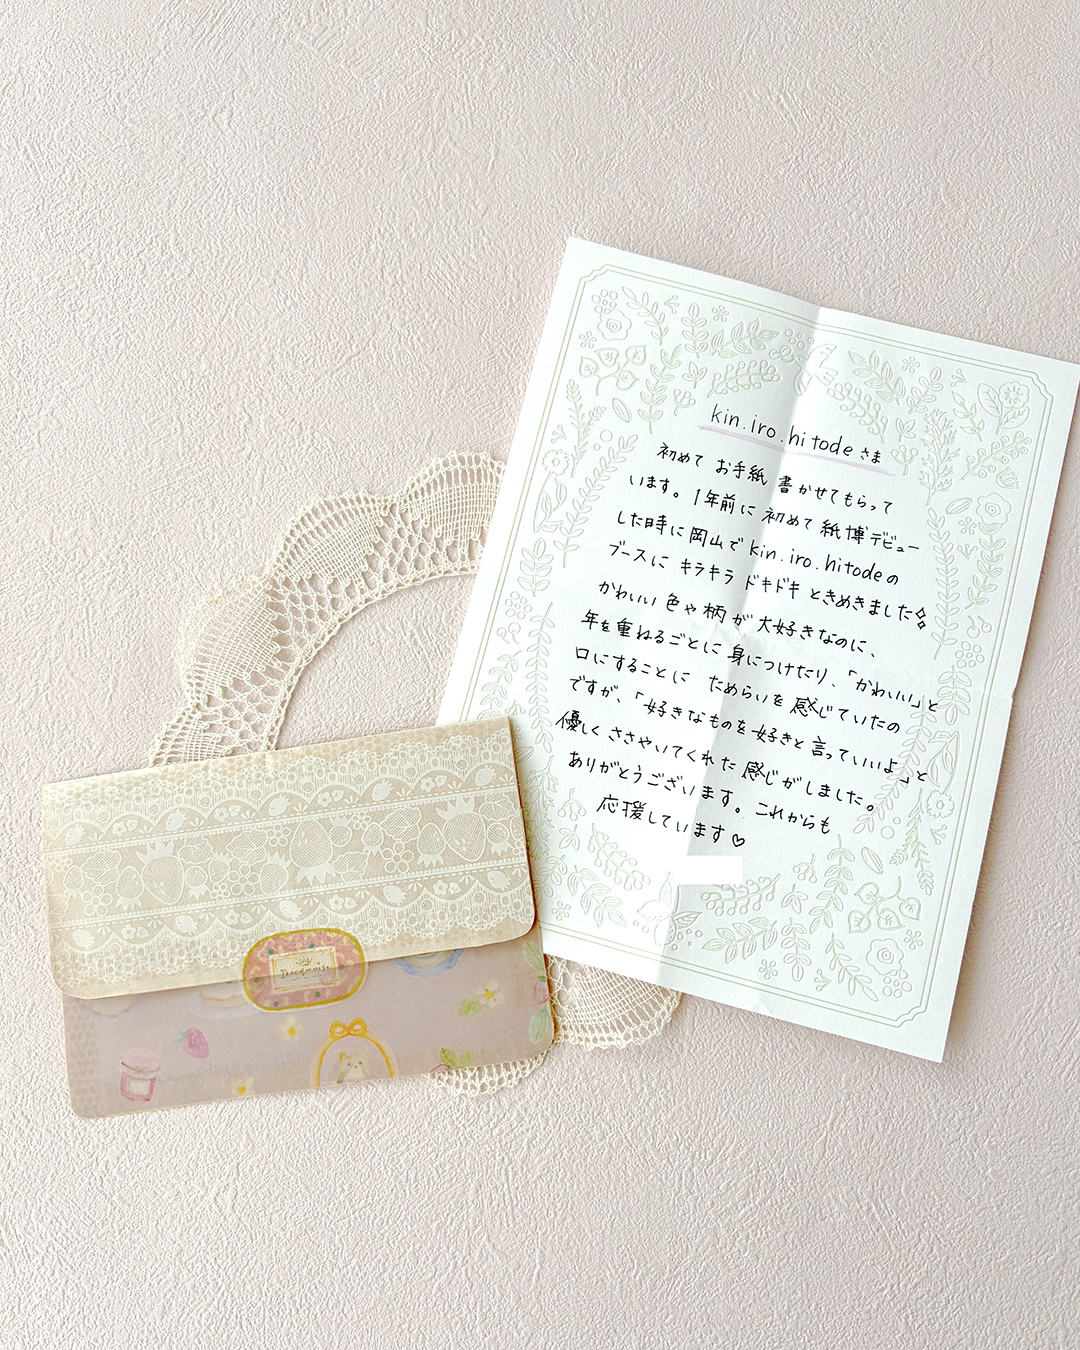 kin.iro.hitodeさま
初めて お手紙 書かせてもらって
います。1年前に 初めて 紙博デビュー
した時に岡山でkin.iro.hitodeの
ブースに キラキラ ドキドキ ときめきました
かわいい 色や柄が大好きなのに、
年を重ねるごとに 身につけたり、「かわいい」と
口にすることに ためらいを 感じていたの
ですが、「好きなものを好きと言っていいよ」と
優しく ささやいてくれた 感じがしました。
ありがとうございます。これからも
応援しています♡